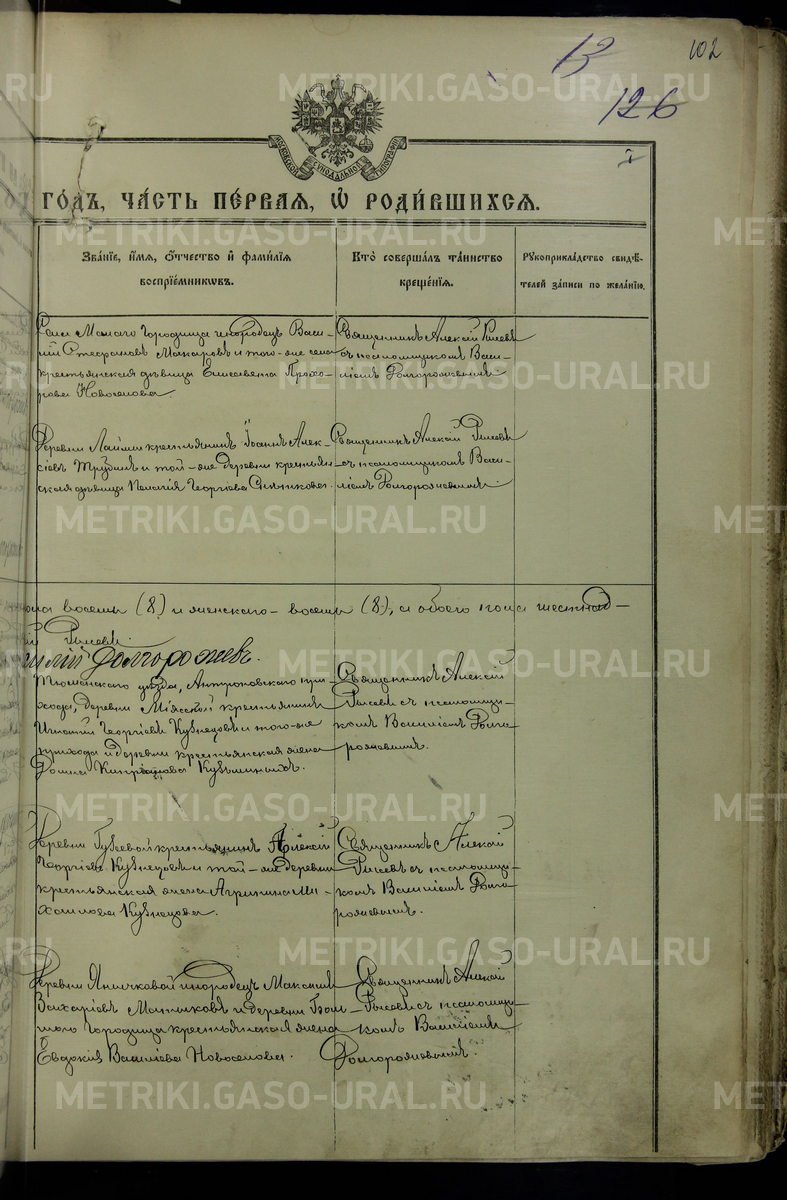 102
13
126
METRIKI.GASO-URAL.RU
МОСКОВСКОЙ СѴНОДАЛЬНОЙ ТИПОГРАФІИ
I
ГО́ДЪ, ЧА́СТЬ ПЕ́РВАЯ, Ѡ҆ РОДИ́ВШИХСЯ.
ЗВА́НІЕ, И҆́МЯ, Ѻ҆́ТЧЕСТВО И҆ ФАМИ́ЛІЯ
ВОСПРІЕ́МНИКѠВЪ.
КТО̀ СОВЕРША́ЛЪ ТА́ИНСТВО
КРЕЩЕ́НІЯ.
РУКОПРИКЛА́ДСТВО СВИДѢ́-
ТЕЛЕЙ ЗА́ПИСИ ПО ЖЕЛА́НІЮ.
Села Малаго Городища инородецъ Васи-
лій Стефановъ Макаровъ и того-же села
крестьянская дѣвица Елисавета Прохо-
рова Новоселова.
Священникъ Алексій
съ псаломщикомъ Васи-
ліемъ Долгорожевымъ.
Деревни крестьянинъ Іоаннъ Алек-
сіевъ и той-же деревни крестьян-
ская дѣвица Пелагія Георгіева
Священникъ Алексій
съ псаломщикомъ Васи-
ліемъ Долгорожевымъ.
пола восемь (8) и женскаго- восемь (8), а обоего пола шестнад-
Долгорожевъ.
Тюменскаго уѣзда, Антроповскаго при-
хода, деревни Міясской крестьянинъ
Игнатій Георгіевъ Кузнецовъ и того-же
прихода и деревни крестьянская жена
Кипріанова Кузьминыхъ.
Священникъ Алексій
съ псаломщи-
комъ Василіемъ Долго-
рожевымъ.
Деревни Гусевой крестьянинъ Алексій
Георгіевъ Кузнецовъ и той-же деревни
крестьянская жена Агрипина Ми-
хаилова Кузнецова.
Священникъ Алексій
съ псаломщи-
комъ Василіемъ Долго-
рожевымъ.
Деревни Яничковой инородецъ Максимъ
Захаріевъ Матиковъ и деревни Боль-
шаго Городища крестьянская жена
Евдокія Василіева Новоселова.
Священникъ Алексій
съ псаломщи-
комъ Василіемъ
Долгорожевымъ.